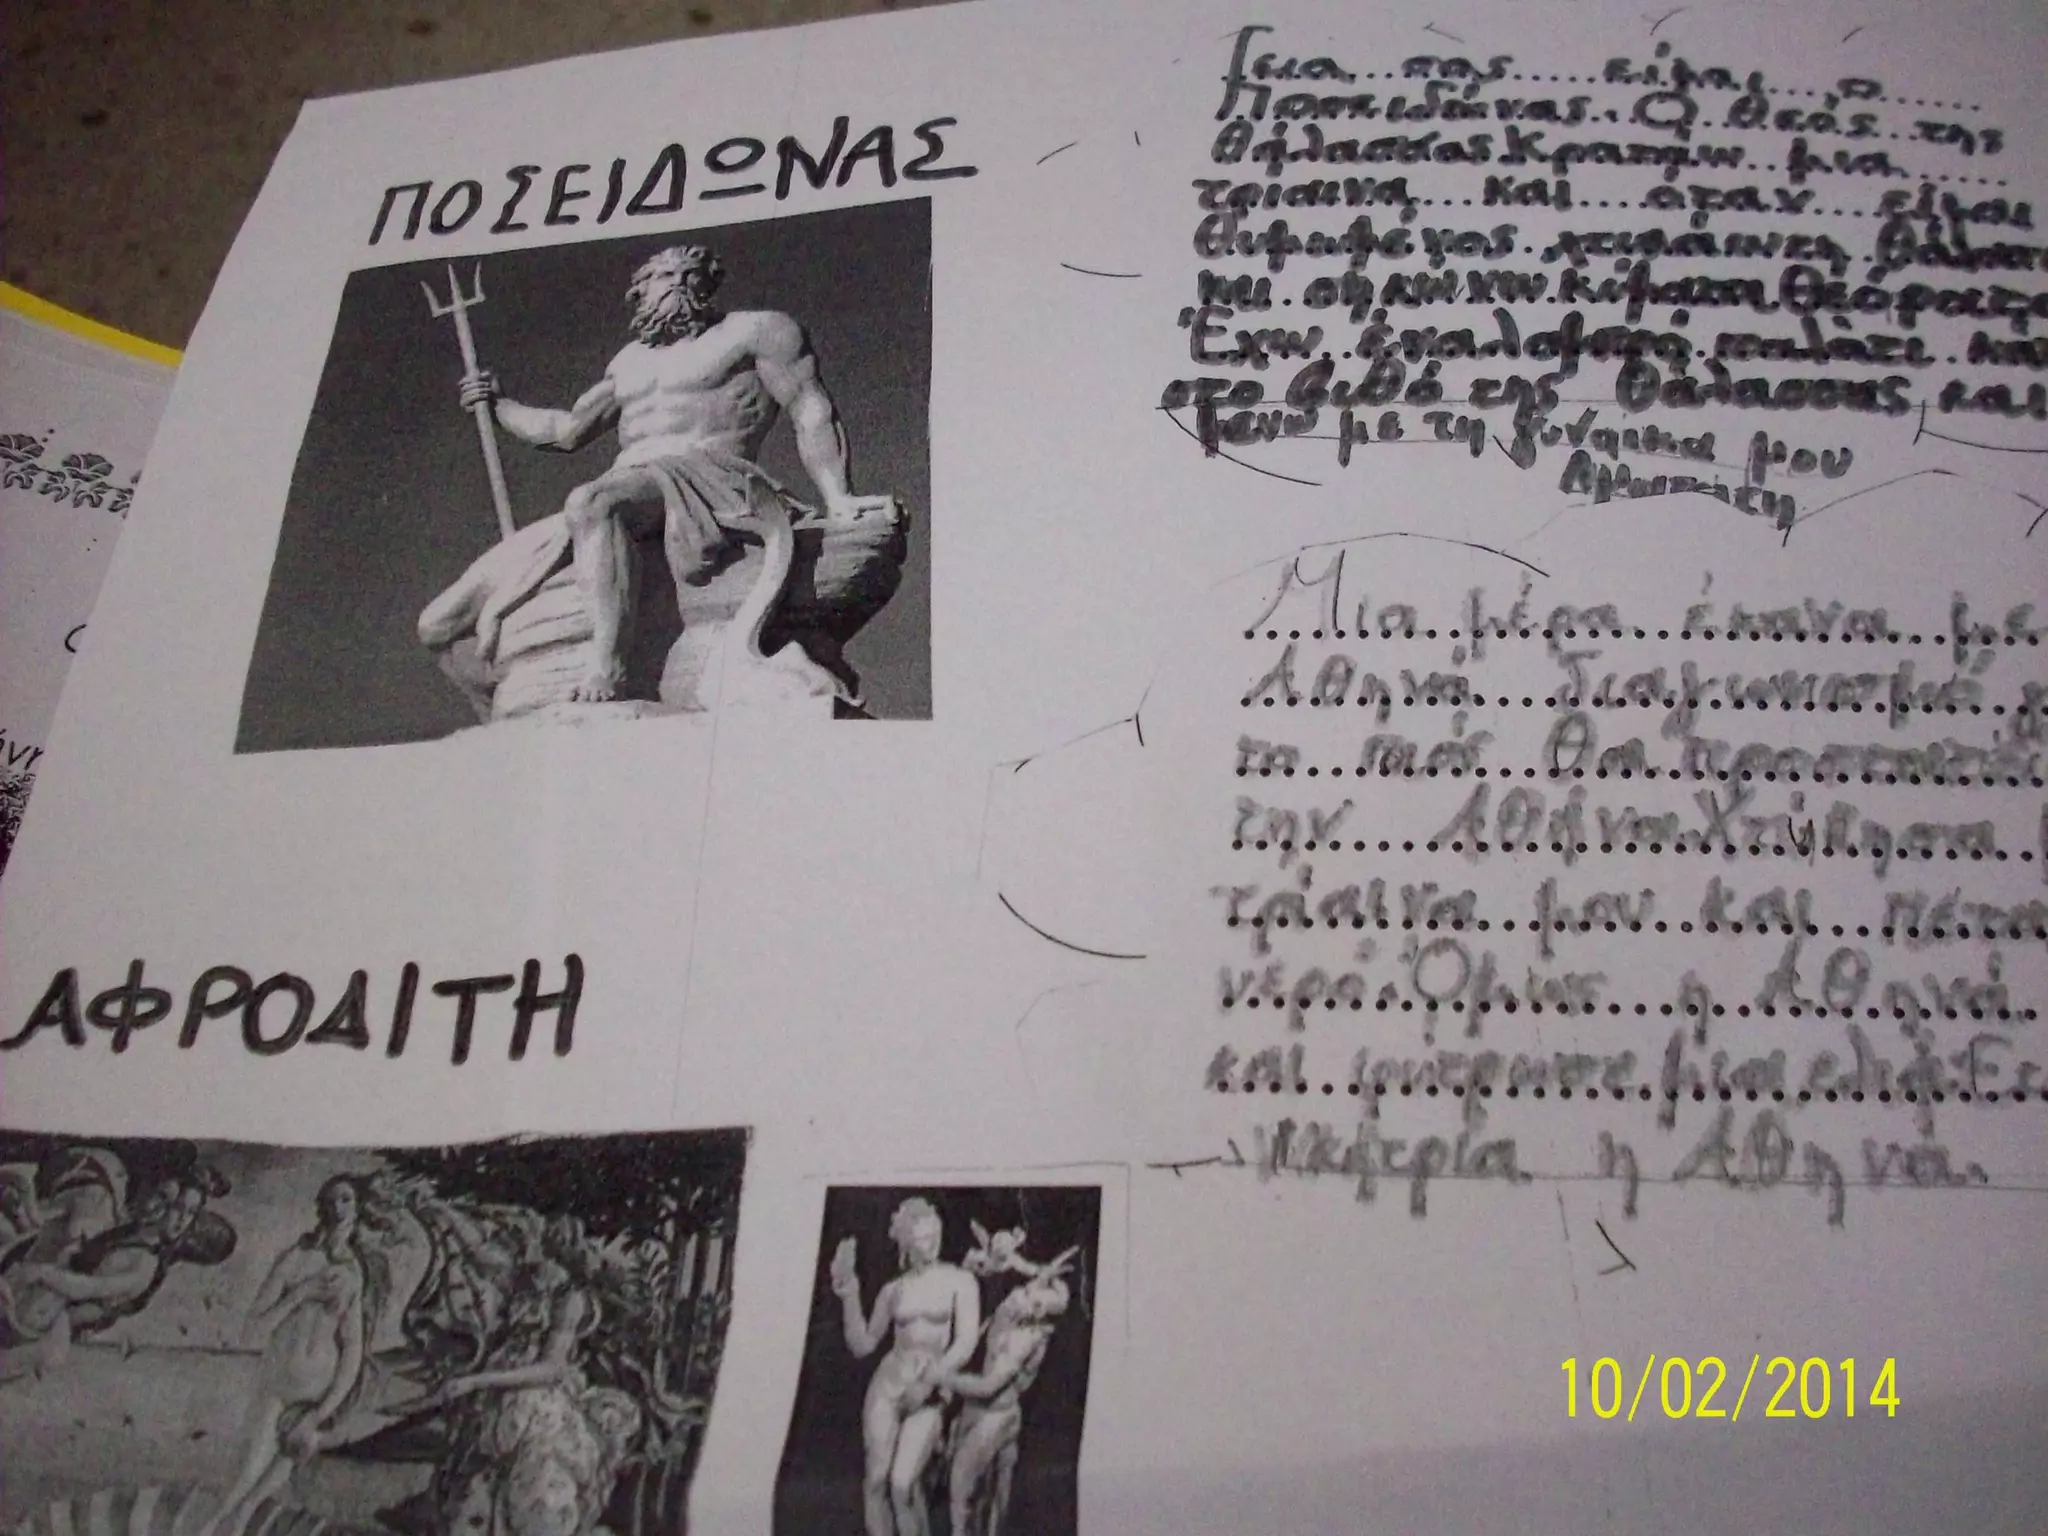 ΠΟΣΕΙΔΩΝΑΣ
Γεια σας είμαι ο
Ποσειδώνας. Ο θεός της
θάλασσας. Κρατάω μια
τρίαινα και όταν είμαι
θυμωμένος
και σηκώνω κύματα θεόρατα
Έχω ένα λαμπρό παλάτι
στο βυθό της θάλασσης και
μενω με τη γυναίκα μου
Μια μέρα έκανα με
Αθηνά διαγωνισμό
το πιός θα προστατεύει
την Αθήνα. Χτύπησα
τρίαινα μου και
νερό. Όμως η Αθηνά
και φύτρωσε μια ελιά.
νικήτρία η Αθηνά.
ΑΦΡΟΔΙΤΗ
10/02/2014